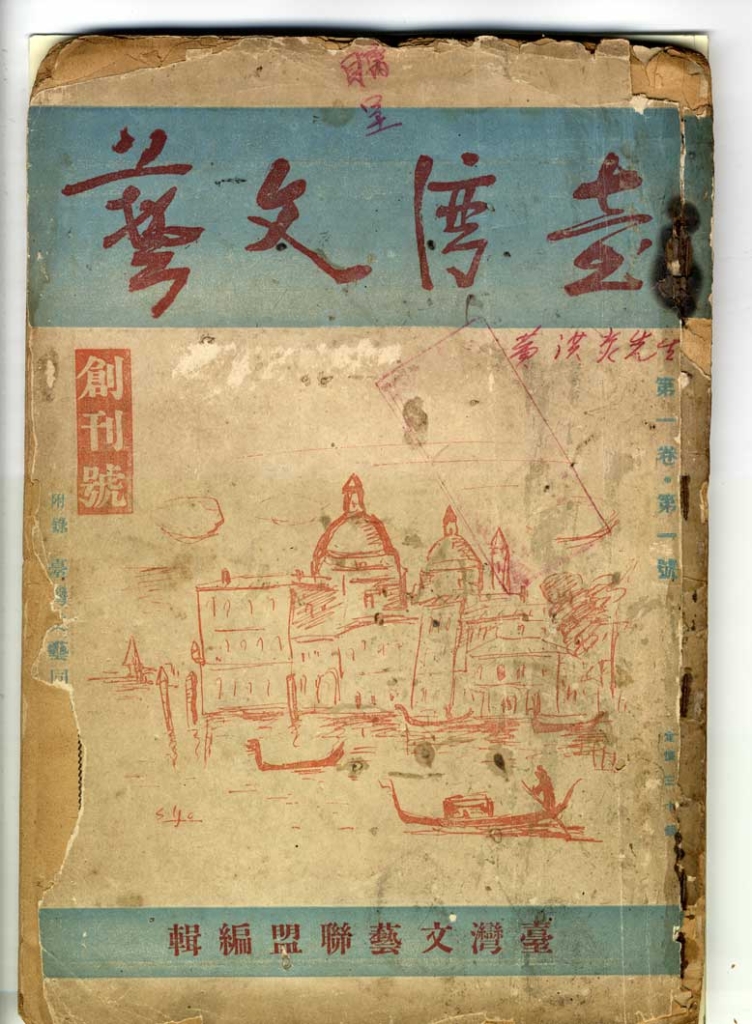 贈呈
臺灣文藝
黃洪炎先生
第一卷・第一號
創刊號
附錄
臺灣文藝聯盟編輯